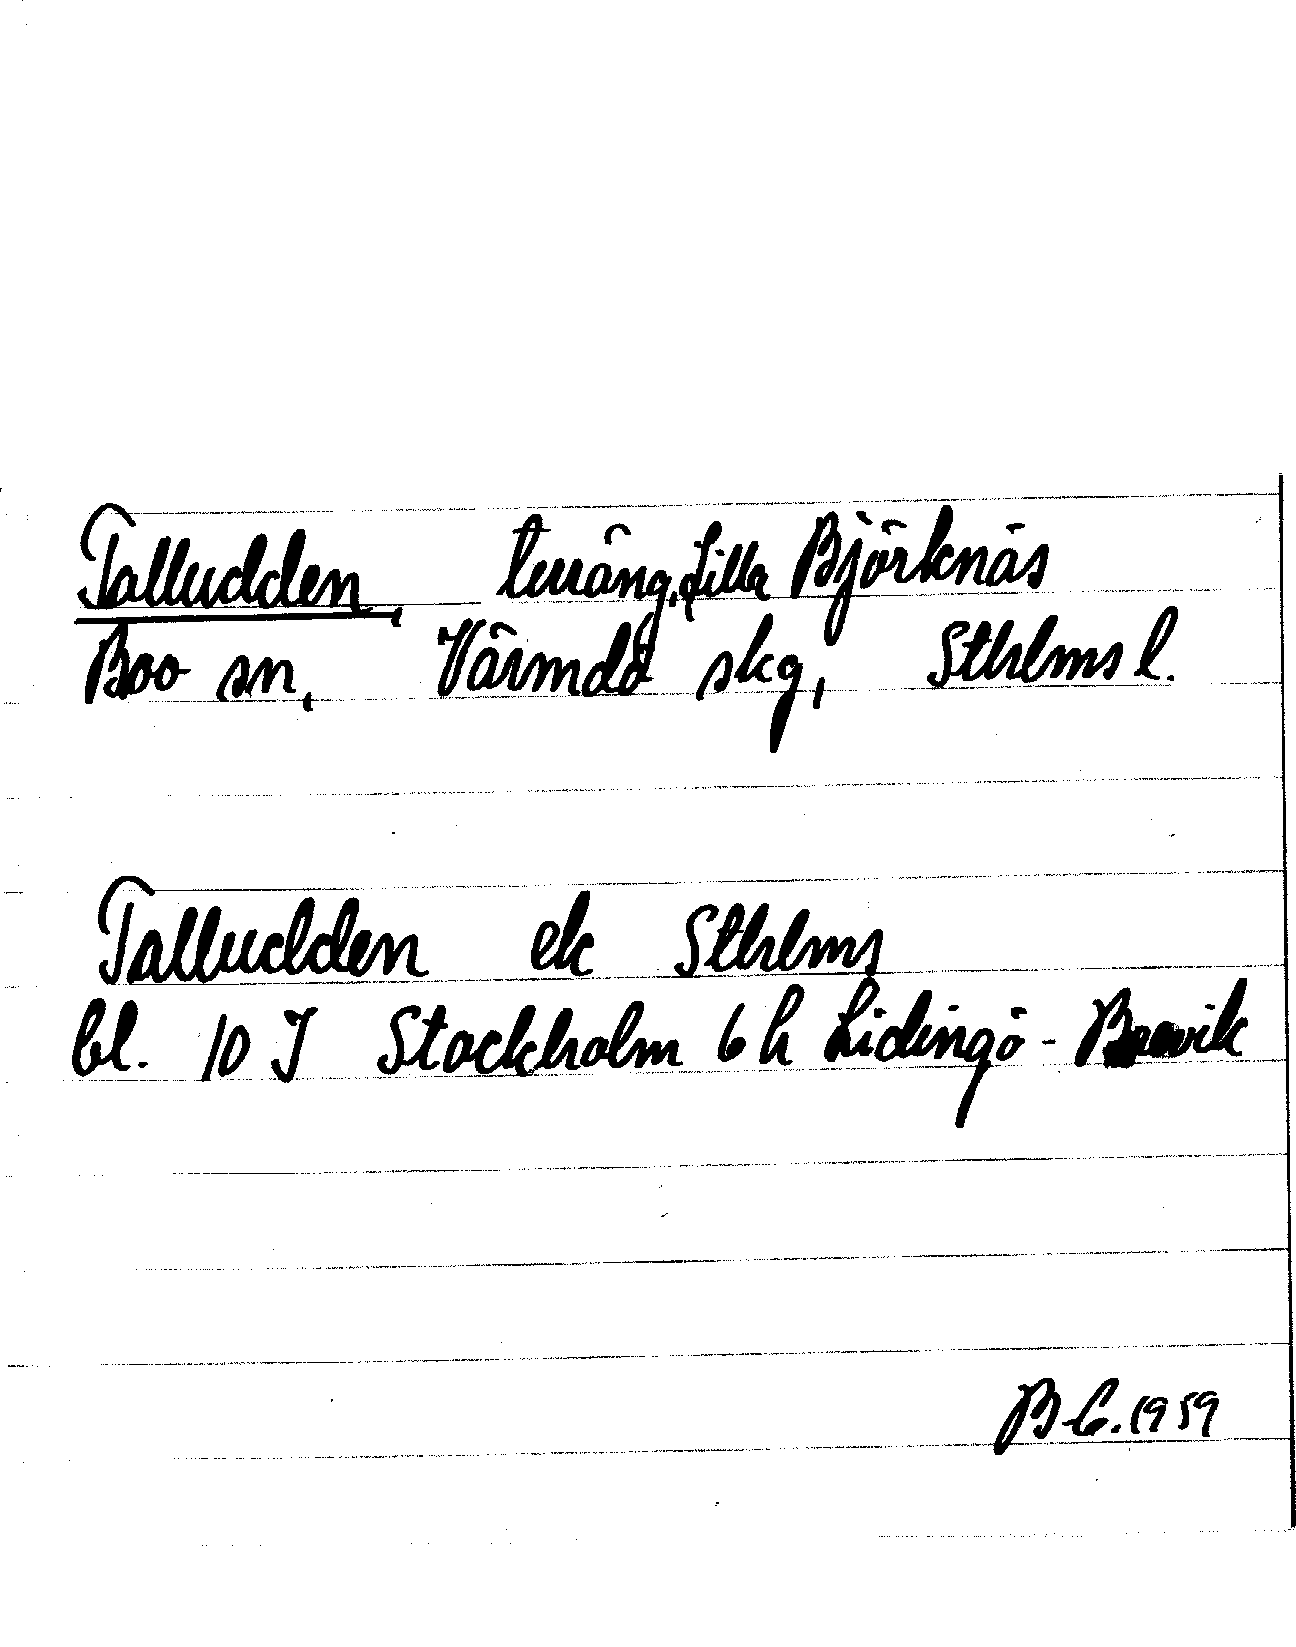 Talludden, terräng, Lilla Björknäs
Boo sn, Värmdö skg, Sthlms l.
Talludden ek Sthlms
bl. 10 J Stockholm 6 h Lidingö - Boovik
B-C. 1959